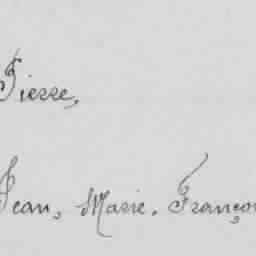 Pierre,
Jean, Marie, Franço